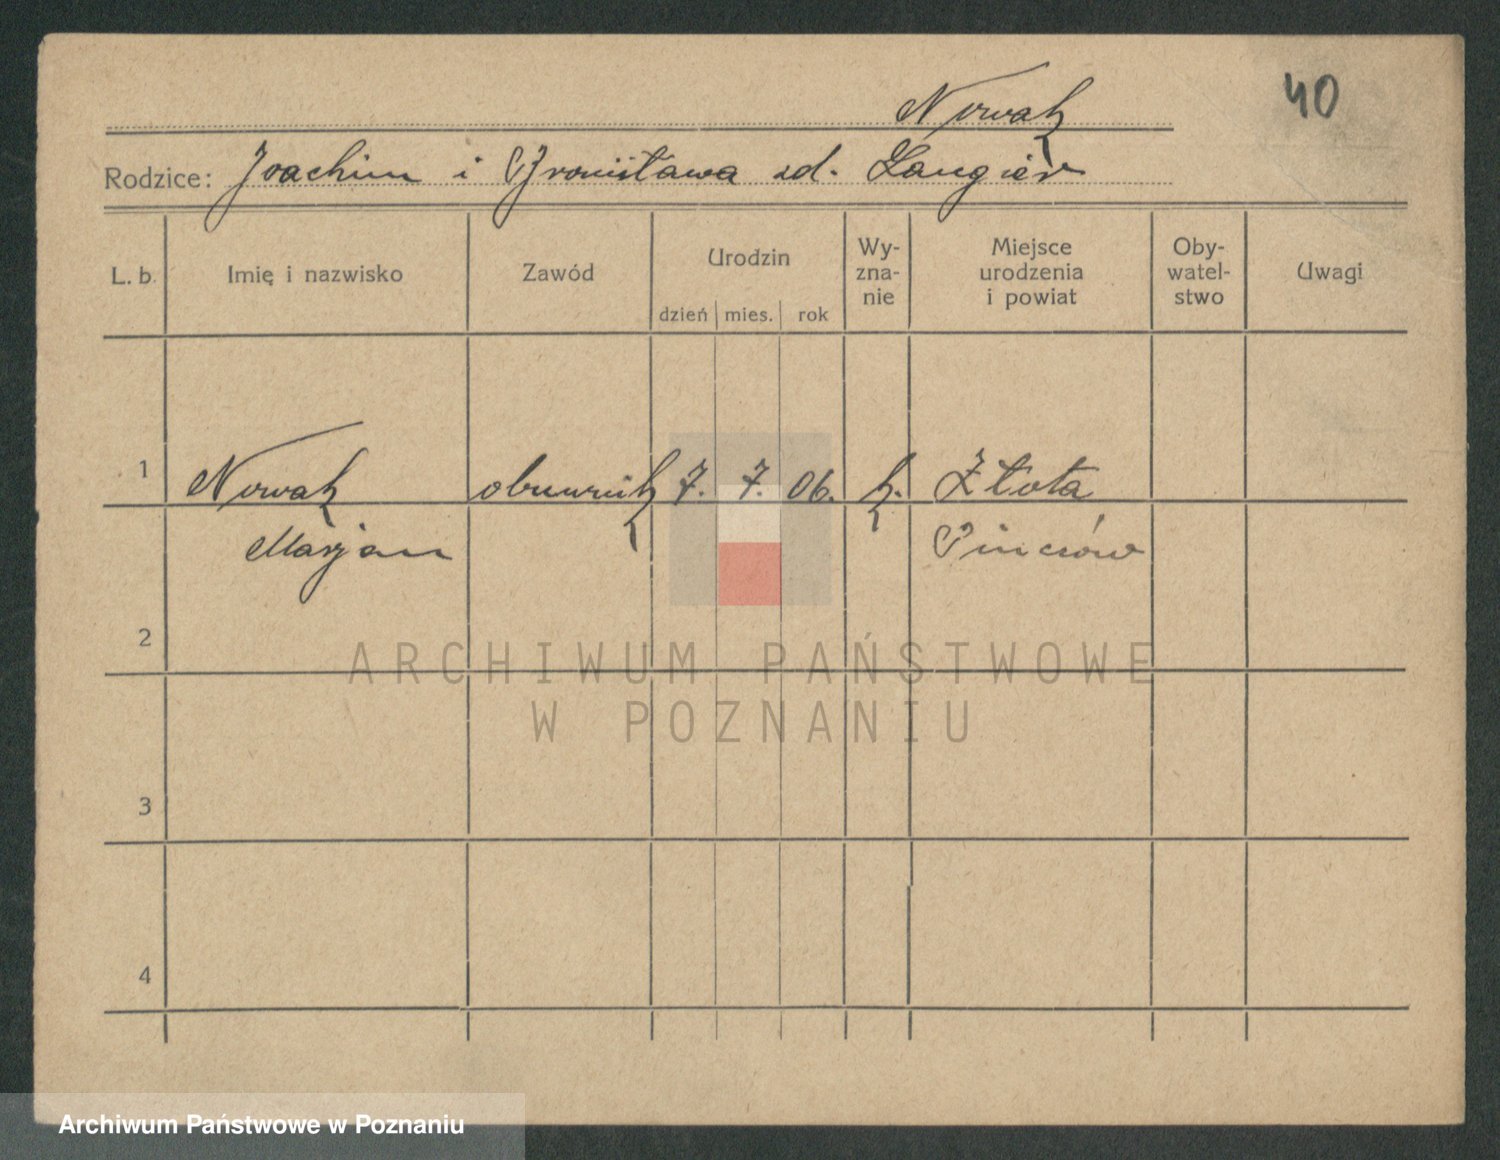 Nowak
40
Rodzice: Joachim i Bronisława zd. Langier
L. b. Imię i nazwisko Zawód Urodzin Wy-zna-nie Miejsce urodzenia i powiat Oby-watel-stwo Uwagi
dzień mies. rok
1 Nowak obuwnik 7. 7. 06. k. Złota
Marjan Pinczów
2
ARCHIWUM PAŃSTWOWE
W POZNANIU
3
4
Archiwum Państwowe w Poznaniu